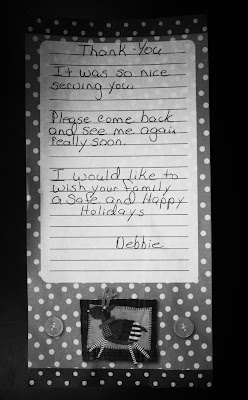 Thank-You
It was so nice
serving you.
Please come back
and see me again
really soon.
I would like to
wish your family
a safe and Happy
Holidays
Debbie